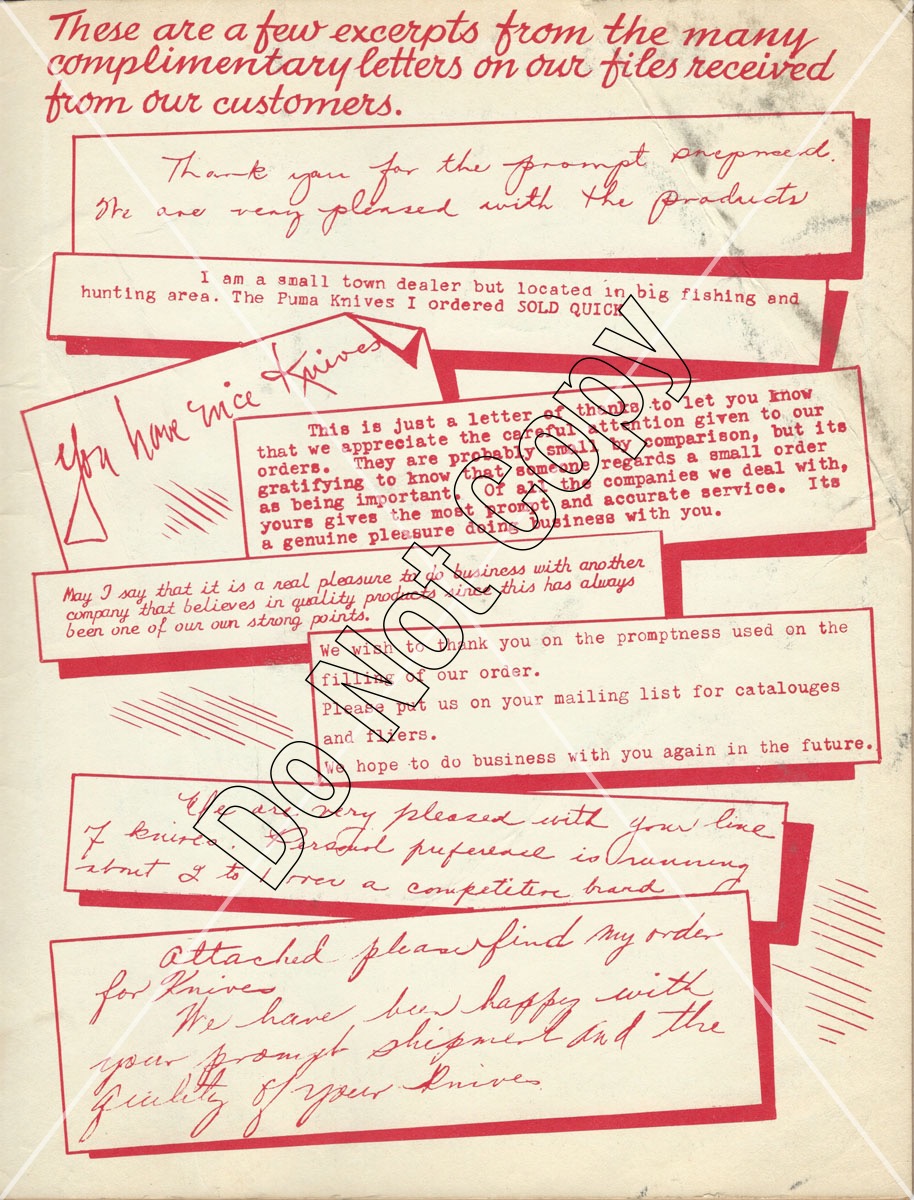 These are a few excerpts from the many
complimentary letters on our files received
from our customers.
Thank you for the prompt shepmend.
We are very pleased with the products
I am a small town dealer but located in big fishing and
hunting area. The Puma Knives I ordered SOLD QUICK
You have nice Knives
This is just a letter of thanks to let you know
that we appreciate the careful attention given to our
orders. They are probably small by comparison, but its
gratifying to know that someone regards a small order
as being important. Of all the companies we deal with,
yours gives the most prompt and accurate service. Its
a genuine pleasure doing business with you.
May I say that it is a real pleasure to do business with another
company that believes in quality products since this has always
been one of our own strong points.
We wish to thank you on the promptness used on the
filling of our order.
Please put us on your mailing list for catalouges
and fliers.
We hope to do business with you again in the future.
We are very pleased with your line
of knives. Personal preference is running
about 2 to 1 over a competitive brand
Attached please find my order
for Knives
We have been happy with
your prompt shipment and the
quility of your Knives
Do Not Copy